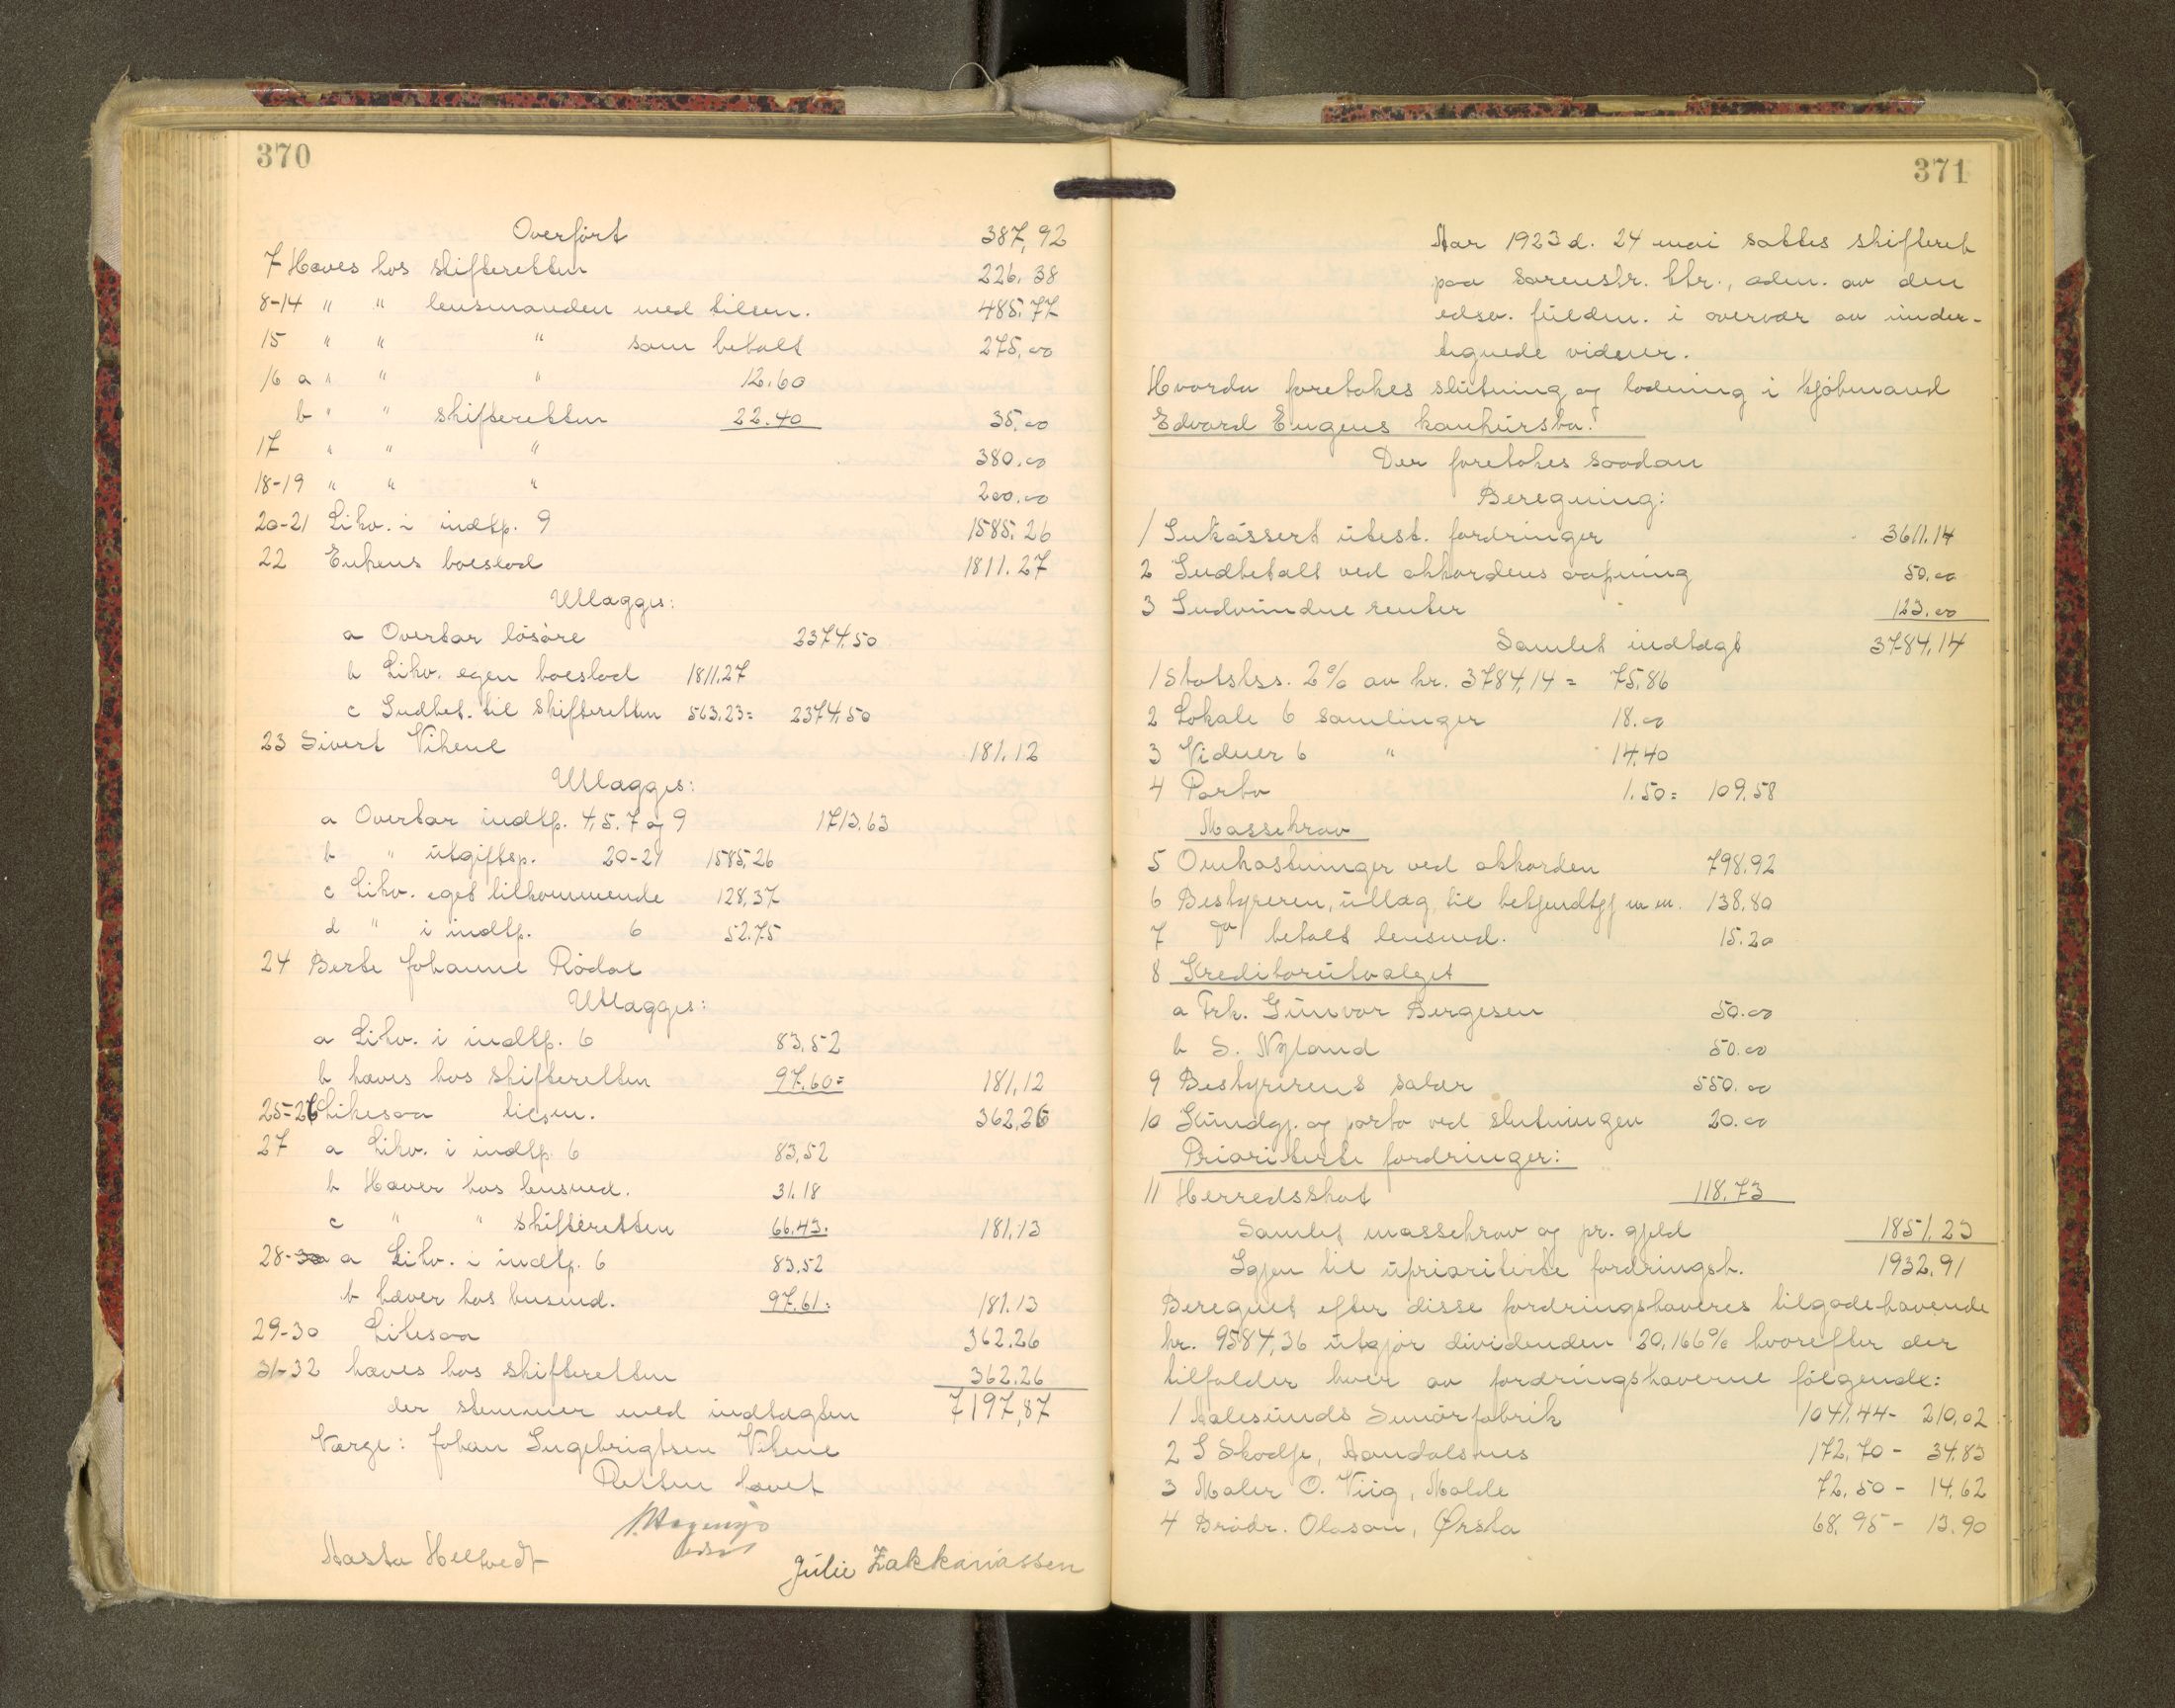 370
Overført 387,92
7 Hæves hos skifteretten 226,38
8-14 " " lensmanden med tilsm. 485,77
15 " " " som betalt 275,00
16 a " " " 12.60
b " " skifteretten 22.40 35,00
17 " " " 380.00
18-19 " " " 200.00
20-21 Likv. i indtp. 9 1585,26
22 Enkens boeslod 1811.27
Utlægges:
a Overtar løsøre 2374,50
b Likv. egen boeslod 1811,27
c Indbet. til skifteretten 563.23= 2374,50
23 Sivert Vikene 181.12
Utlægges:
a Overtar indtp. 4,5.7 og 9 1713.63
b " utgiftsp. 20-21 1585,26
c Likv. eget tilkommende 128,37
d " i indtp. 6 52.75
24 Berte Johanne Rødal
Utlægges:
a Likv. i indtp. 6 83,52
b hæves hos skifteretten 97.60= 181,12
25-26 Likesaa tilsm. 362,26
27 a Likv. i indtp. 6 83,52
b Hæver hos lensmd. 31.18
c " " skifteretten 66.43. 181,13
28-30 a Likv. i indtp. 6 83,52
b hæver hos lensmd. 97.61= 181.13
29-30 Likesaa 362.26
31-32 hæves hos skifteretten 362.26
der stemmer med indtægten 7197,87
Værge: Johan Ingebrigtsen Vikene
Retten hævet
Aasta Heltvedt
Julie Zakkariassen
371
Aar 1923 d. 24 mai sattes skifteret
paa sorenskr. ktr., adm. av den
edsv. fuldm. i overvær av under-
tegnede vidner.
Hvorda foretokes slutning og lodning i kjøbmand
Edvard Eugens konkursbo.
Der foretokes saadan
Beregning:
1 Inkassert utest. fordringer 3611.14
2 Indbetalt ved akkordens aapning 50.00
3 Indvundne renter 123.00
Samlet indtægt 3784,14
1 Statskss. 2% av kr. 3784,14 = 75,86
2 Lokale 6 samlinger 18.00
3 Vidner 6 " 14.40
4 Porto 1.50= 109.58
Massekrav
5 Omkostninger ved akkorden 798.92
6 Bestyreren, utlæg til bekjendtgj m m. 138.80
7 Do betalt lensmd. 15.20
8 Kreditorutvalget
a Frk. Gunvor Bergesen 50.00
b S. Nyland 50.00
9 Bestyrerens salær 550.00
10 Kundgj. og porto ved slutningen 20.00
Prioriterte fordringer:
11 Herredsskat 118.73
Samlet massekrav og pr. gjeld 1851.23
Igjen til uprioriterte fordringsh. 1932.91
Beregnet efter disse fordringshaveres tilgodehavende
kr. 9584,36 utgjør dividenden 20,166% hvorefter der
tilfalder hver av fordringshaverne følgende:
1 Aalesunds Smørfabrik 1041.44- 210,02
2 I Skodje, Aandalsnes 172.70 - 34.83
3 Maler O. Viig, Molde 72.50 - 14.62
4 Brødr. Olason, Ørsta 68.95 - 13.90